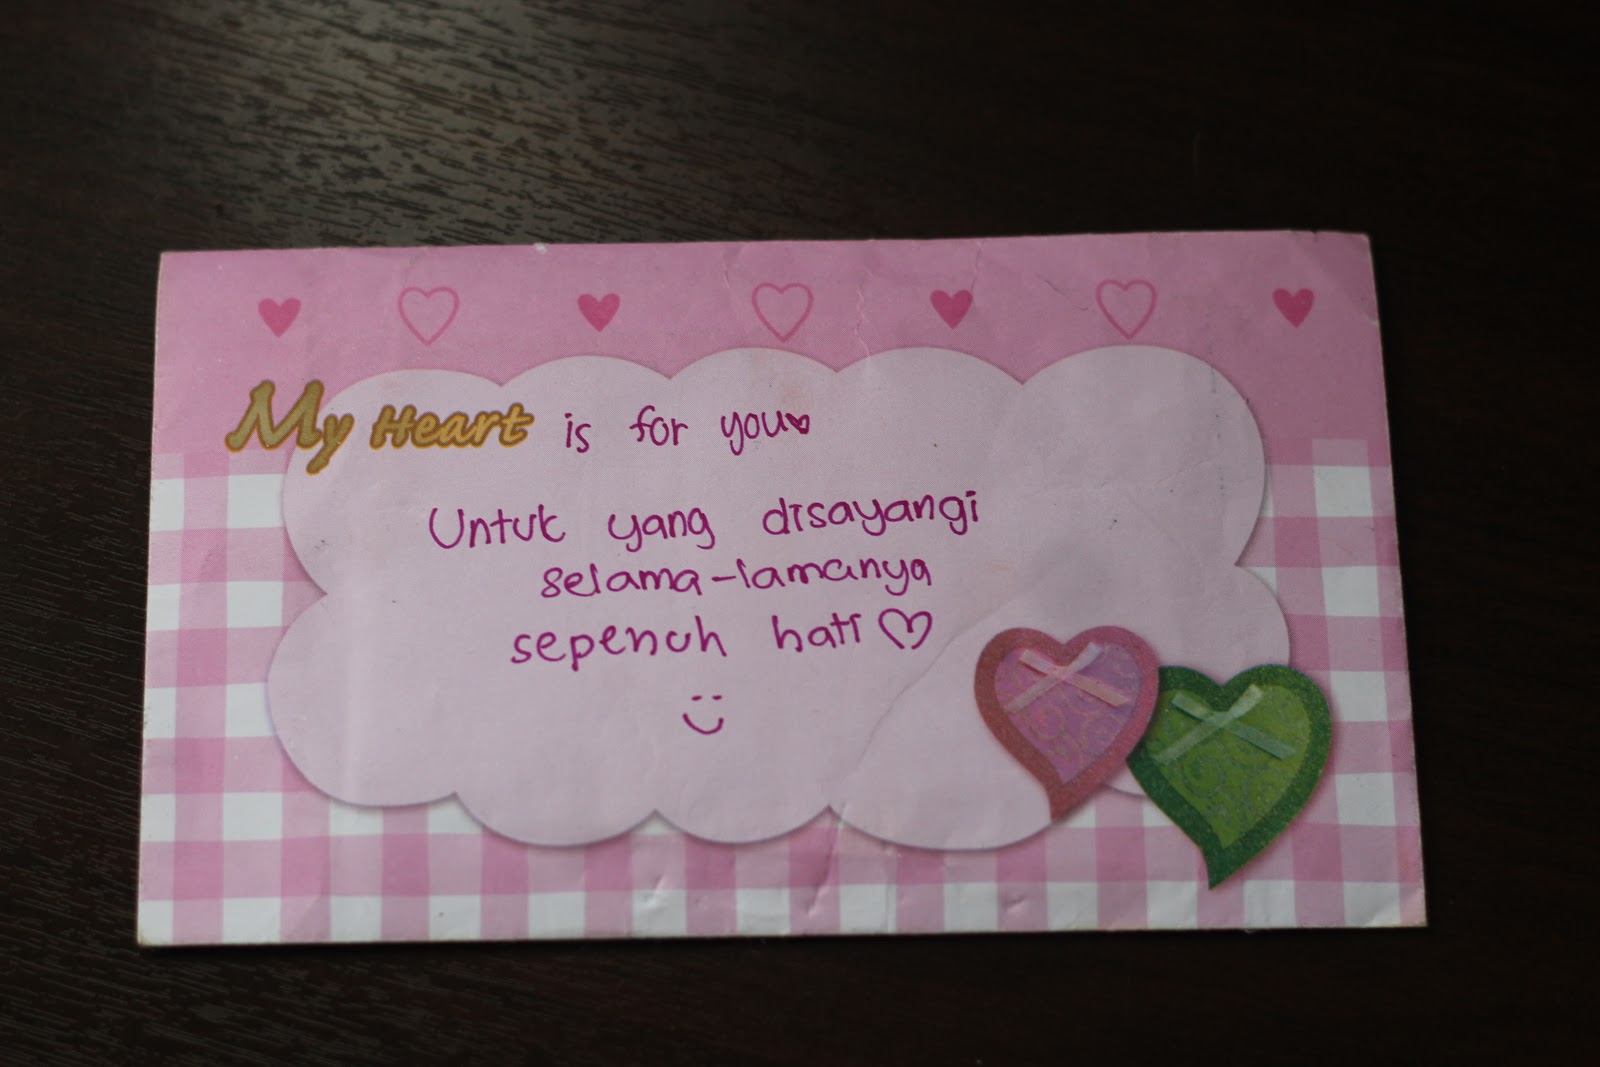 My Heart is for you♥
Untuk yang disayangi
selama-lamanya
sepenuh hati ♡